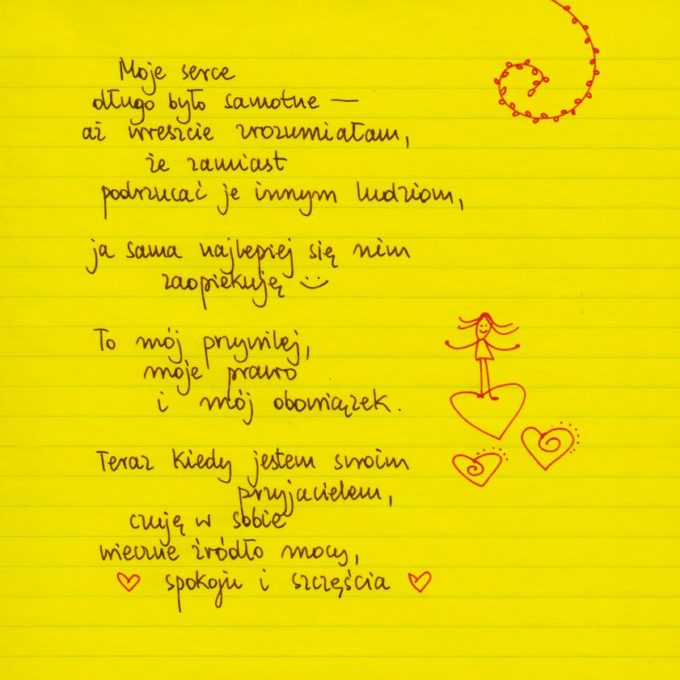 Moje serce
długo było samotne —
aż wreszcie zrozumiałam,
że zamiast
podrzucać je innym ludziom,
ja sama najlepiej się nim
zaopiekuję :)
To mój przywilej,
moje prawo
i mój obowiązek.
Teraz kiedy jestem swoim
przyjacielem,
czuję w sobie
wieczne źródło mocy,
♡ spokoju i szczęścia ♡